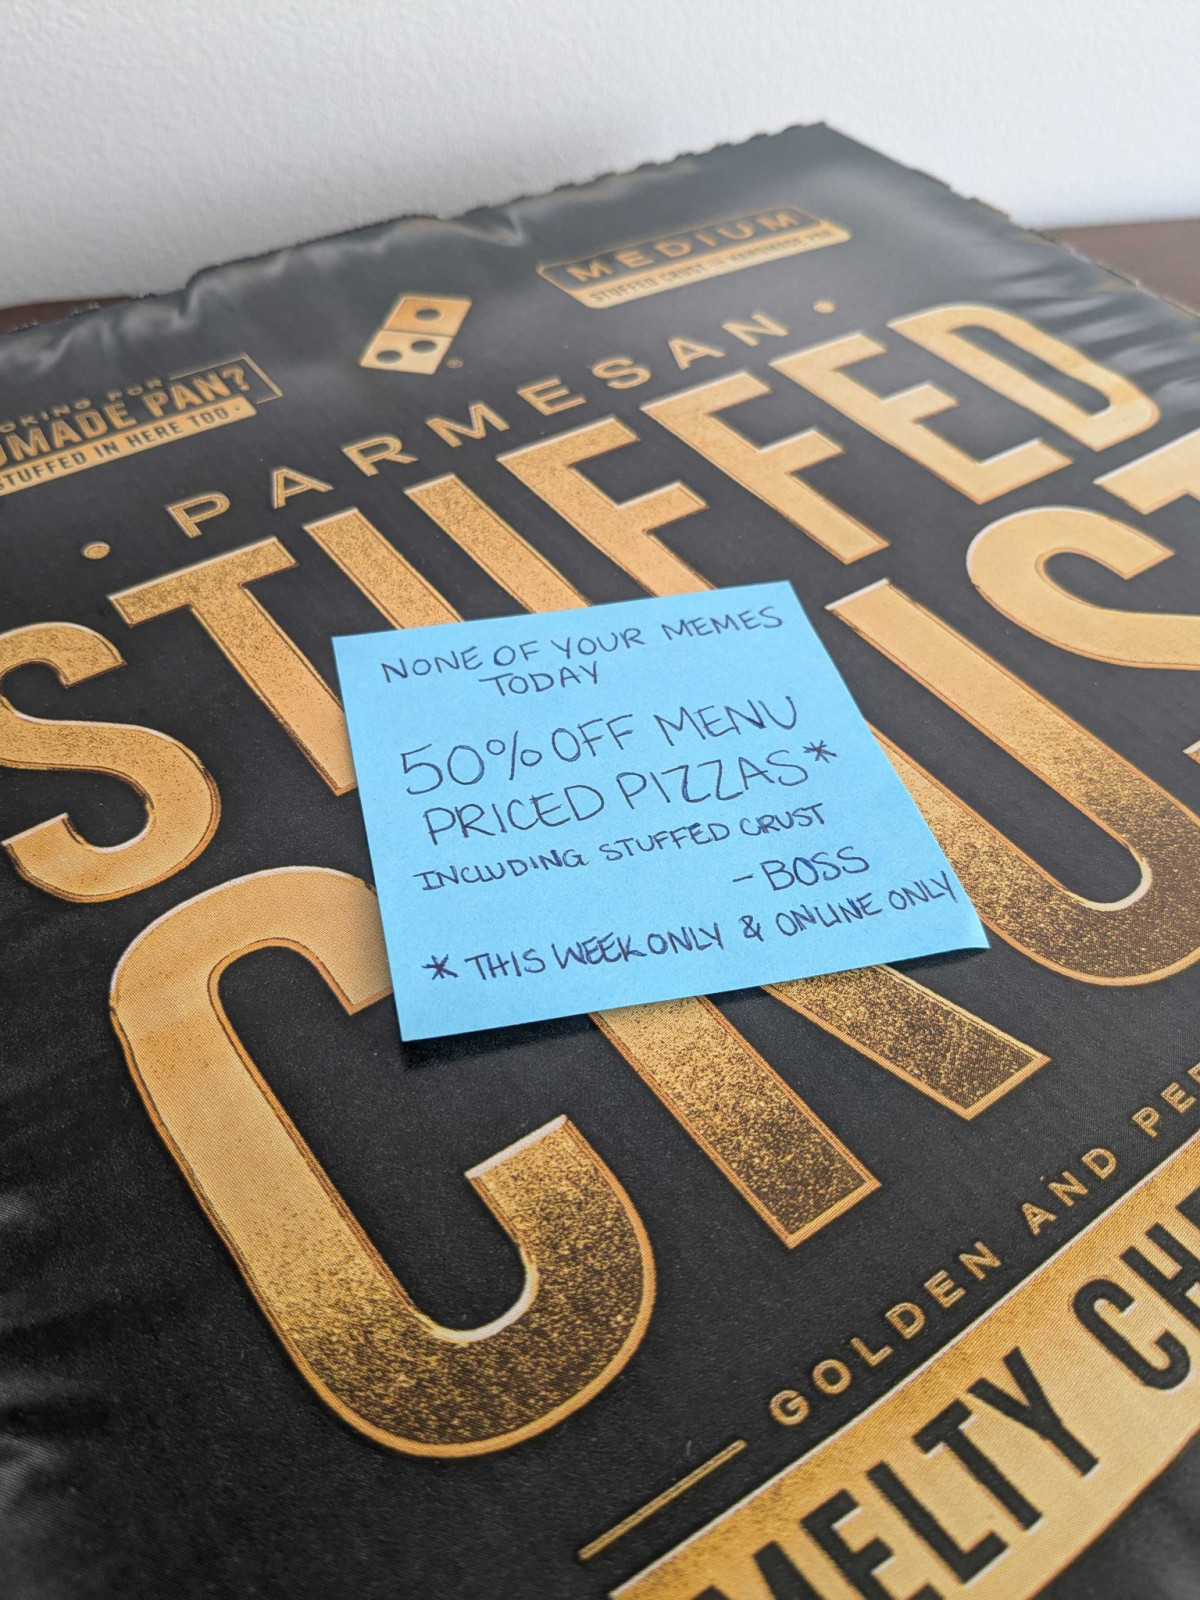 MEDIUM
STUFFED CRUST
MADE PAN?
STUFFED IN HERE TOO
• PARMESAN •
STUFFED
NONE OF YOUR MEMES
TODAY
50% OFF MENU
PRICED PIZZAS*
INCLUDING STUFFED CRUST
- BOSS
* THIS WEEK ONLY & ONLINE ONLY
GOLDEN AND
MELTY